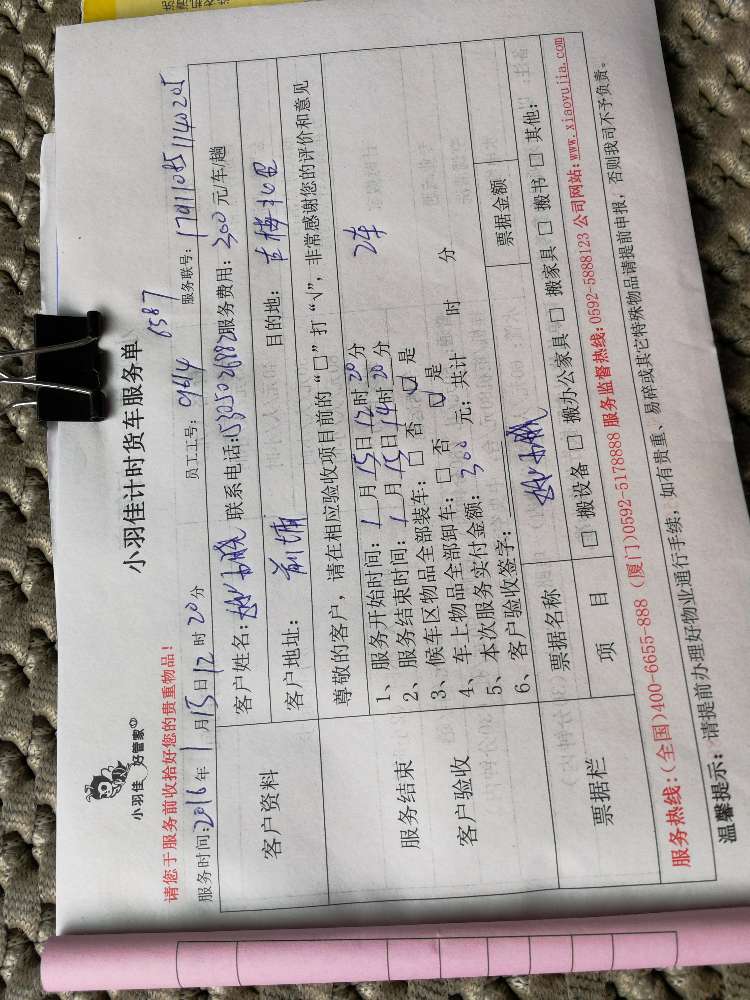 小羽佳计时货车服务单
小羽佳 好管家
请您于服务前收拾好您的贵重物品!
员工工号: 9614 6587
服务联号:
服务时间:2016年1月15日12时20分
客户资料
客户姓名: 联系电话: 服务费用:300元/车/趟
客户地址:前埔 目的地:古楼北里
服务结束
客户验收
尊敬的客户,请在相应验收项目前的“□”打“√”,非常感谢您的评价和意见
1、服务开始时间:1月15日12时20分
2、服务结束时间:1月15日14时20分 2车
3、候车区物品全部装车:□ 否 ☑ 是
4、车上物品全部卸车:□ 否 ☑ 是
5、本次服务实付金额:300元;共计 时 分
6、客户验收签字:
票据栏
票据名称 票据金额
项 目 □ 搬设备 □ 搬办公家具 □ 搬家具 □ 搬书 □ 其他:
服务热线:(全国)400-6655-888 (厦门)0592-5178888 服务监督热线:0592-5888123 公司网站:www.xiaoyujia.com
温馨提示:请提前办理好物业通行手续,如有贵重、易碎或其它特殊物品请提前申报,否则我司不予负责。